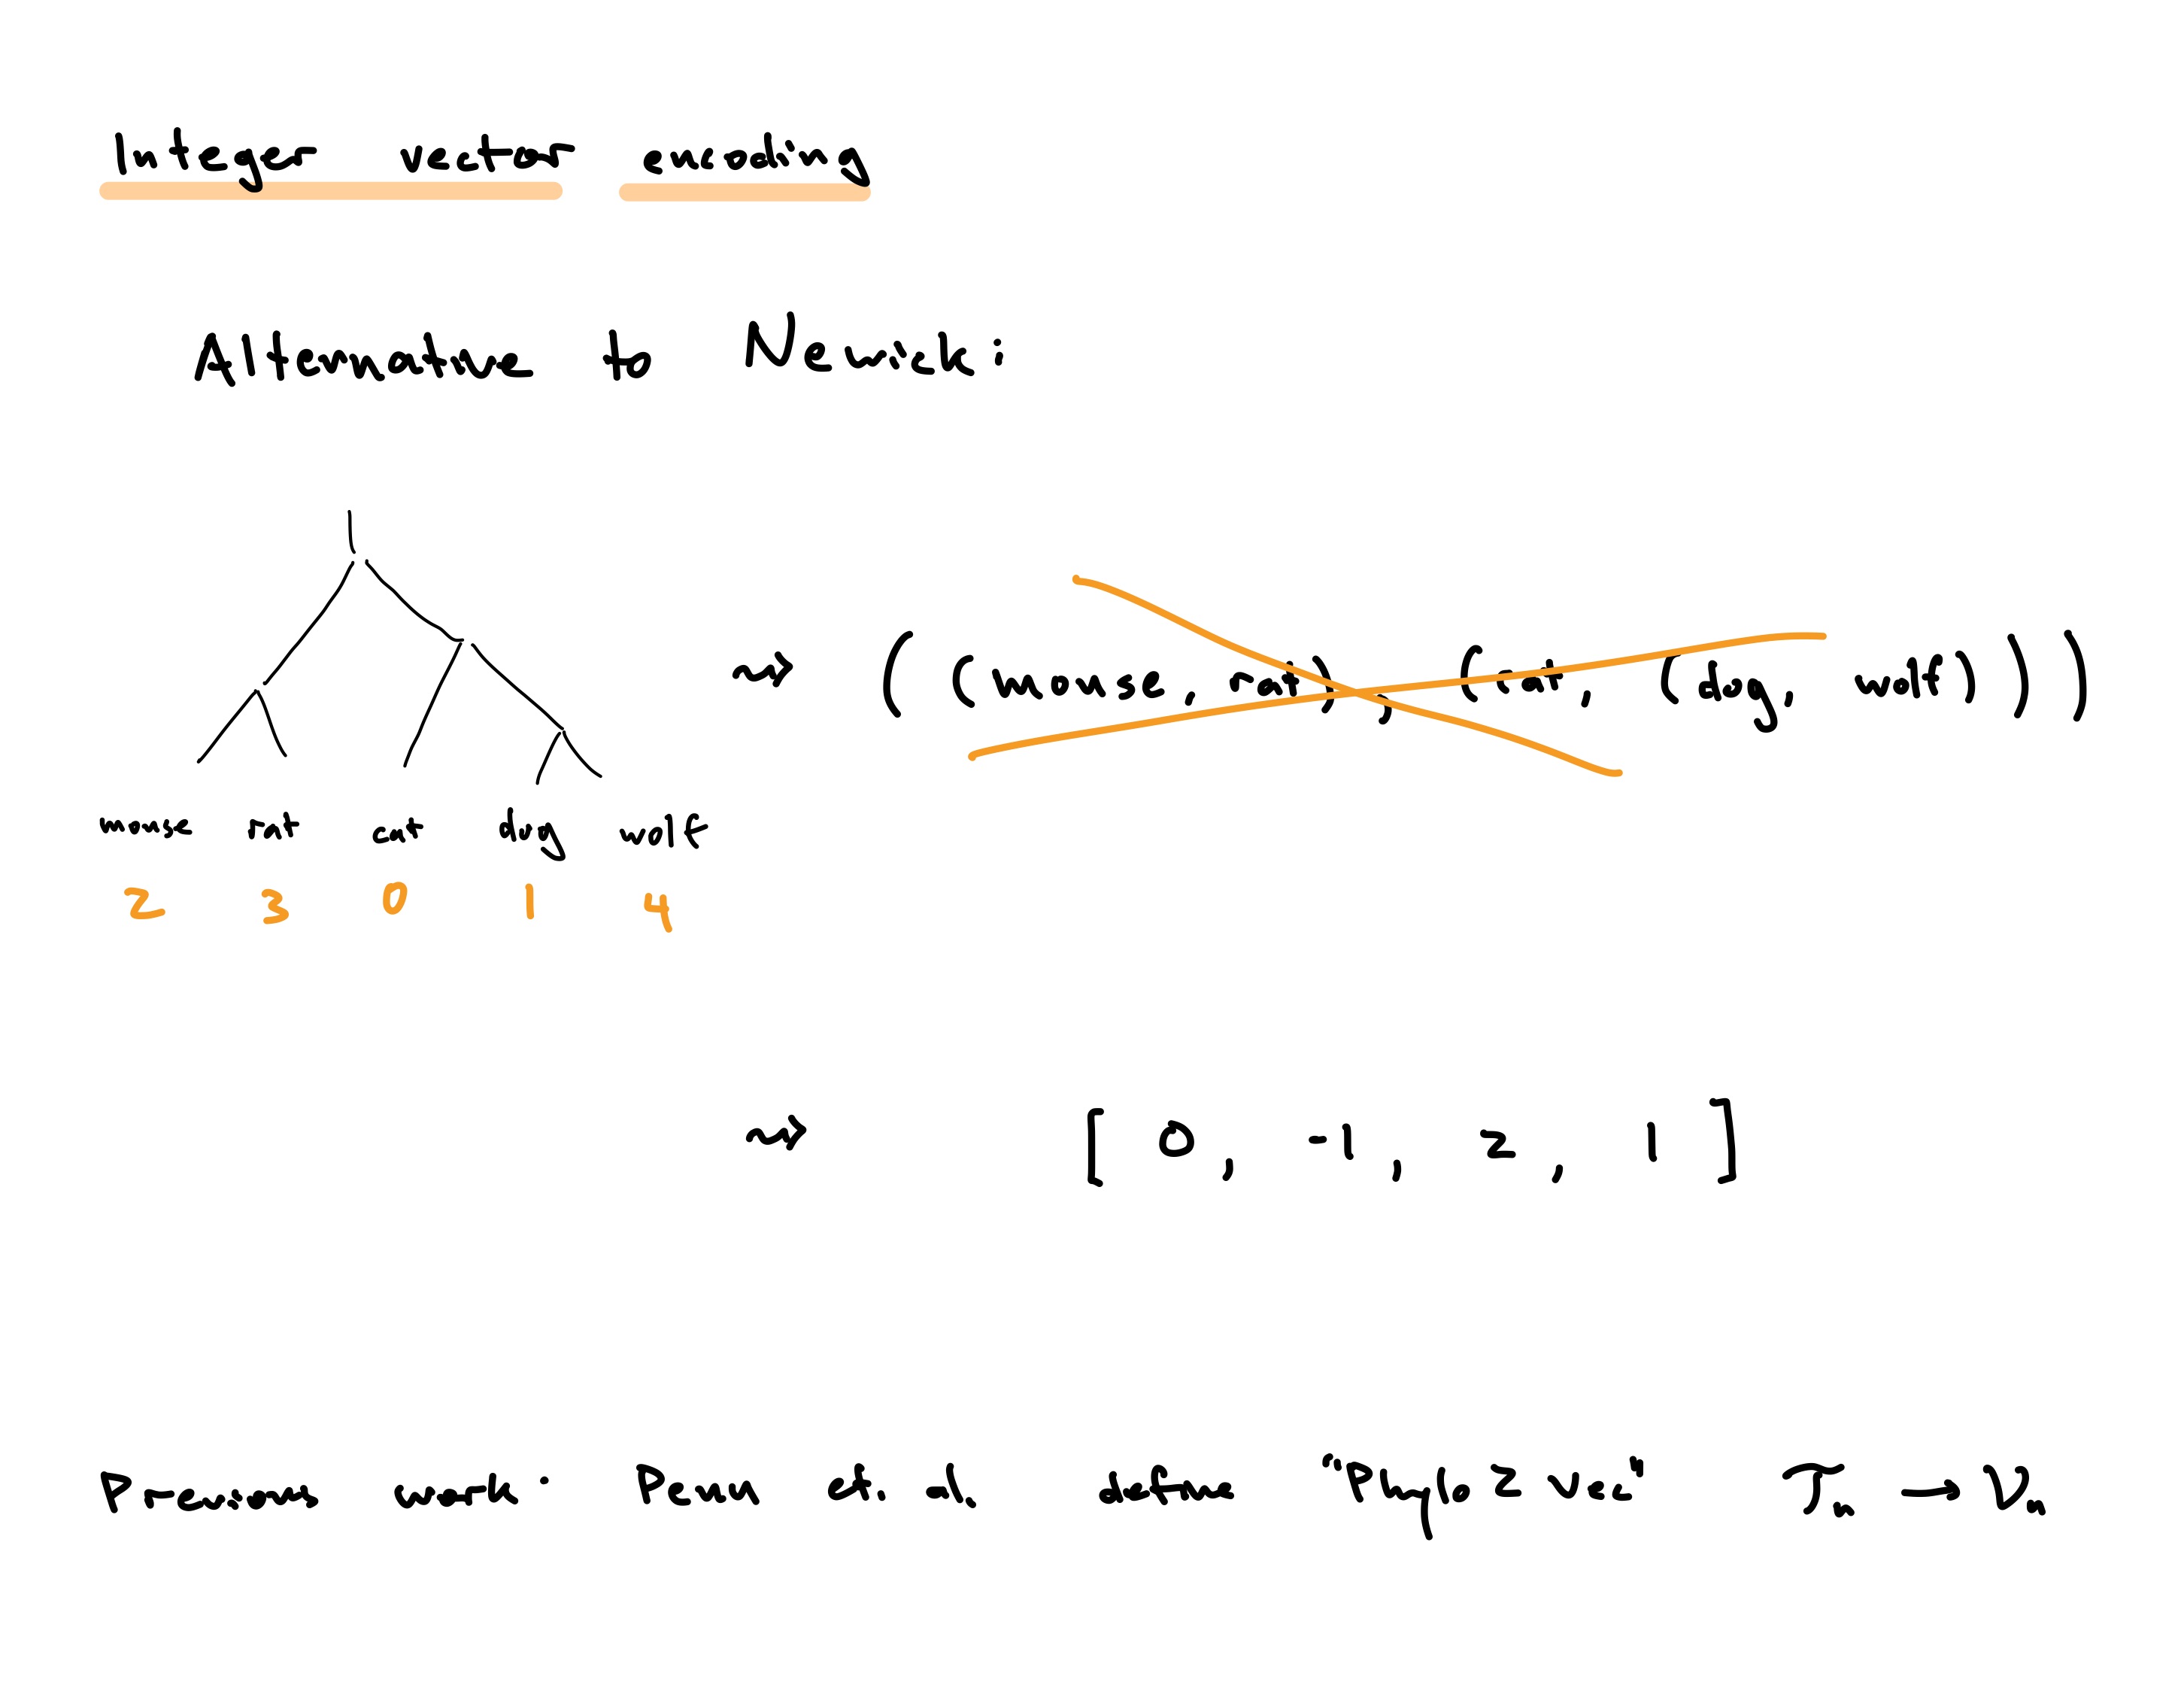 Integer vector encoding
Alternative to Newick:
⇝ ((mouse, rat), (cat, (dog, wolf)))
mouse rat cat dog wolf
2 3 0 1 4
⇝ [0, -1, 2, 1]
Previous work: Penn et al. define "Phylo2Vec" Tₙ → Vₙ